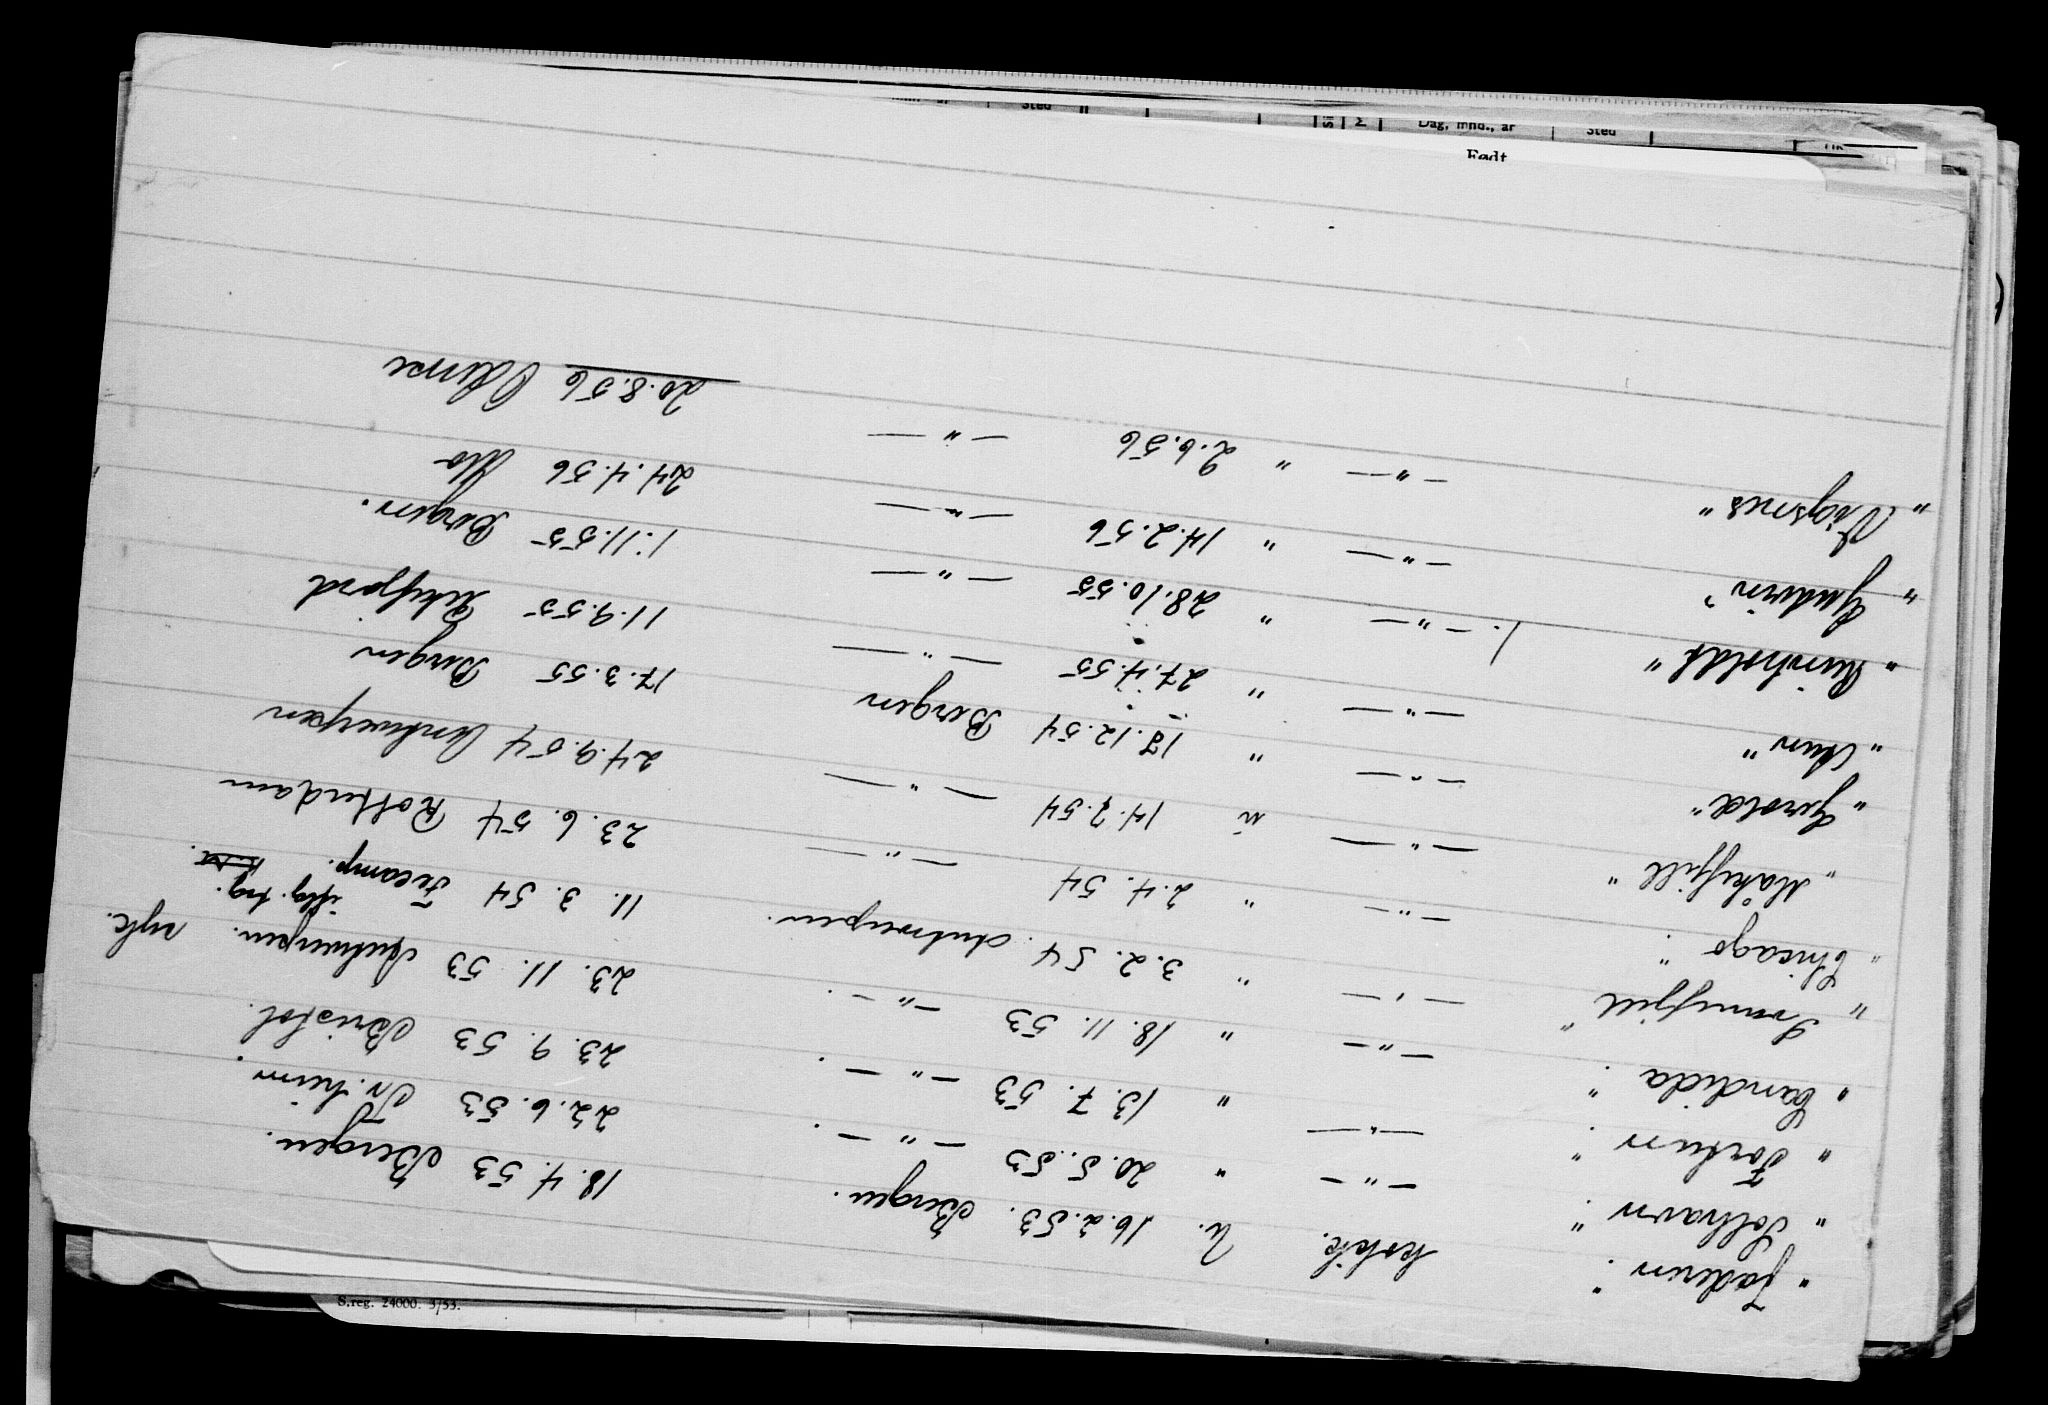 "Jaderen". kokk. U. 16.2.53. Bergen. 18.4.53 Bergen.
"Solhavn". —"— " 20.5.53 —"—. 22.6.53 Tr.heim.
"Fortun". —"— " 13.7.53 —"—. 23.9.53 Bristol.
"Candida". —"— " 18.11.53 —"—. 23.11.53 Antwerpen. syk.
"fjell" —"— " 3.2.54. Antwerpen. 11.3.54 Fecamp.
"Chicago". —"— " 2.4.54 —"— 23.6.54 Rotterdam
"Måkefjell" —"— " 14.7.54 —"— 24.9.54 Antwerpen
"Gerold" —"— " 17.12.54 Bergen 17.3.55 Bergen
—"— " 27.4.55 —"— 11.9.55
"Reinholdt" —"— " 28.10.55 —"— 1.11.55 Bergen.
"Gudrin" —"— " 14.2.56 —"— 24.4.56
"Vigsnes" —"— " 2.6.56 —"— 20.8.56
S.reg. 24000. 3/53.
Født
Dag, mnd., år Sted
Sted